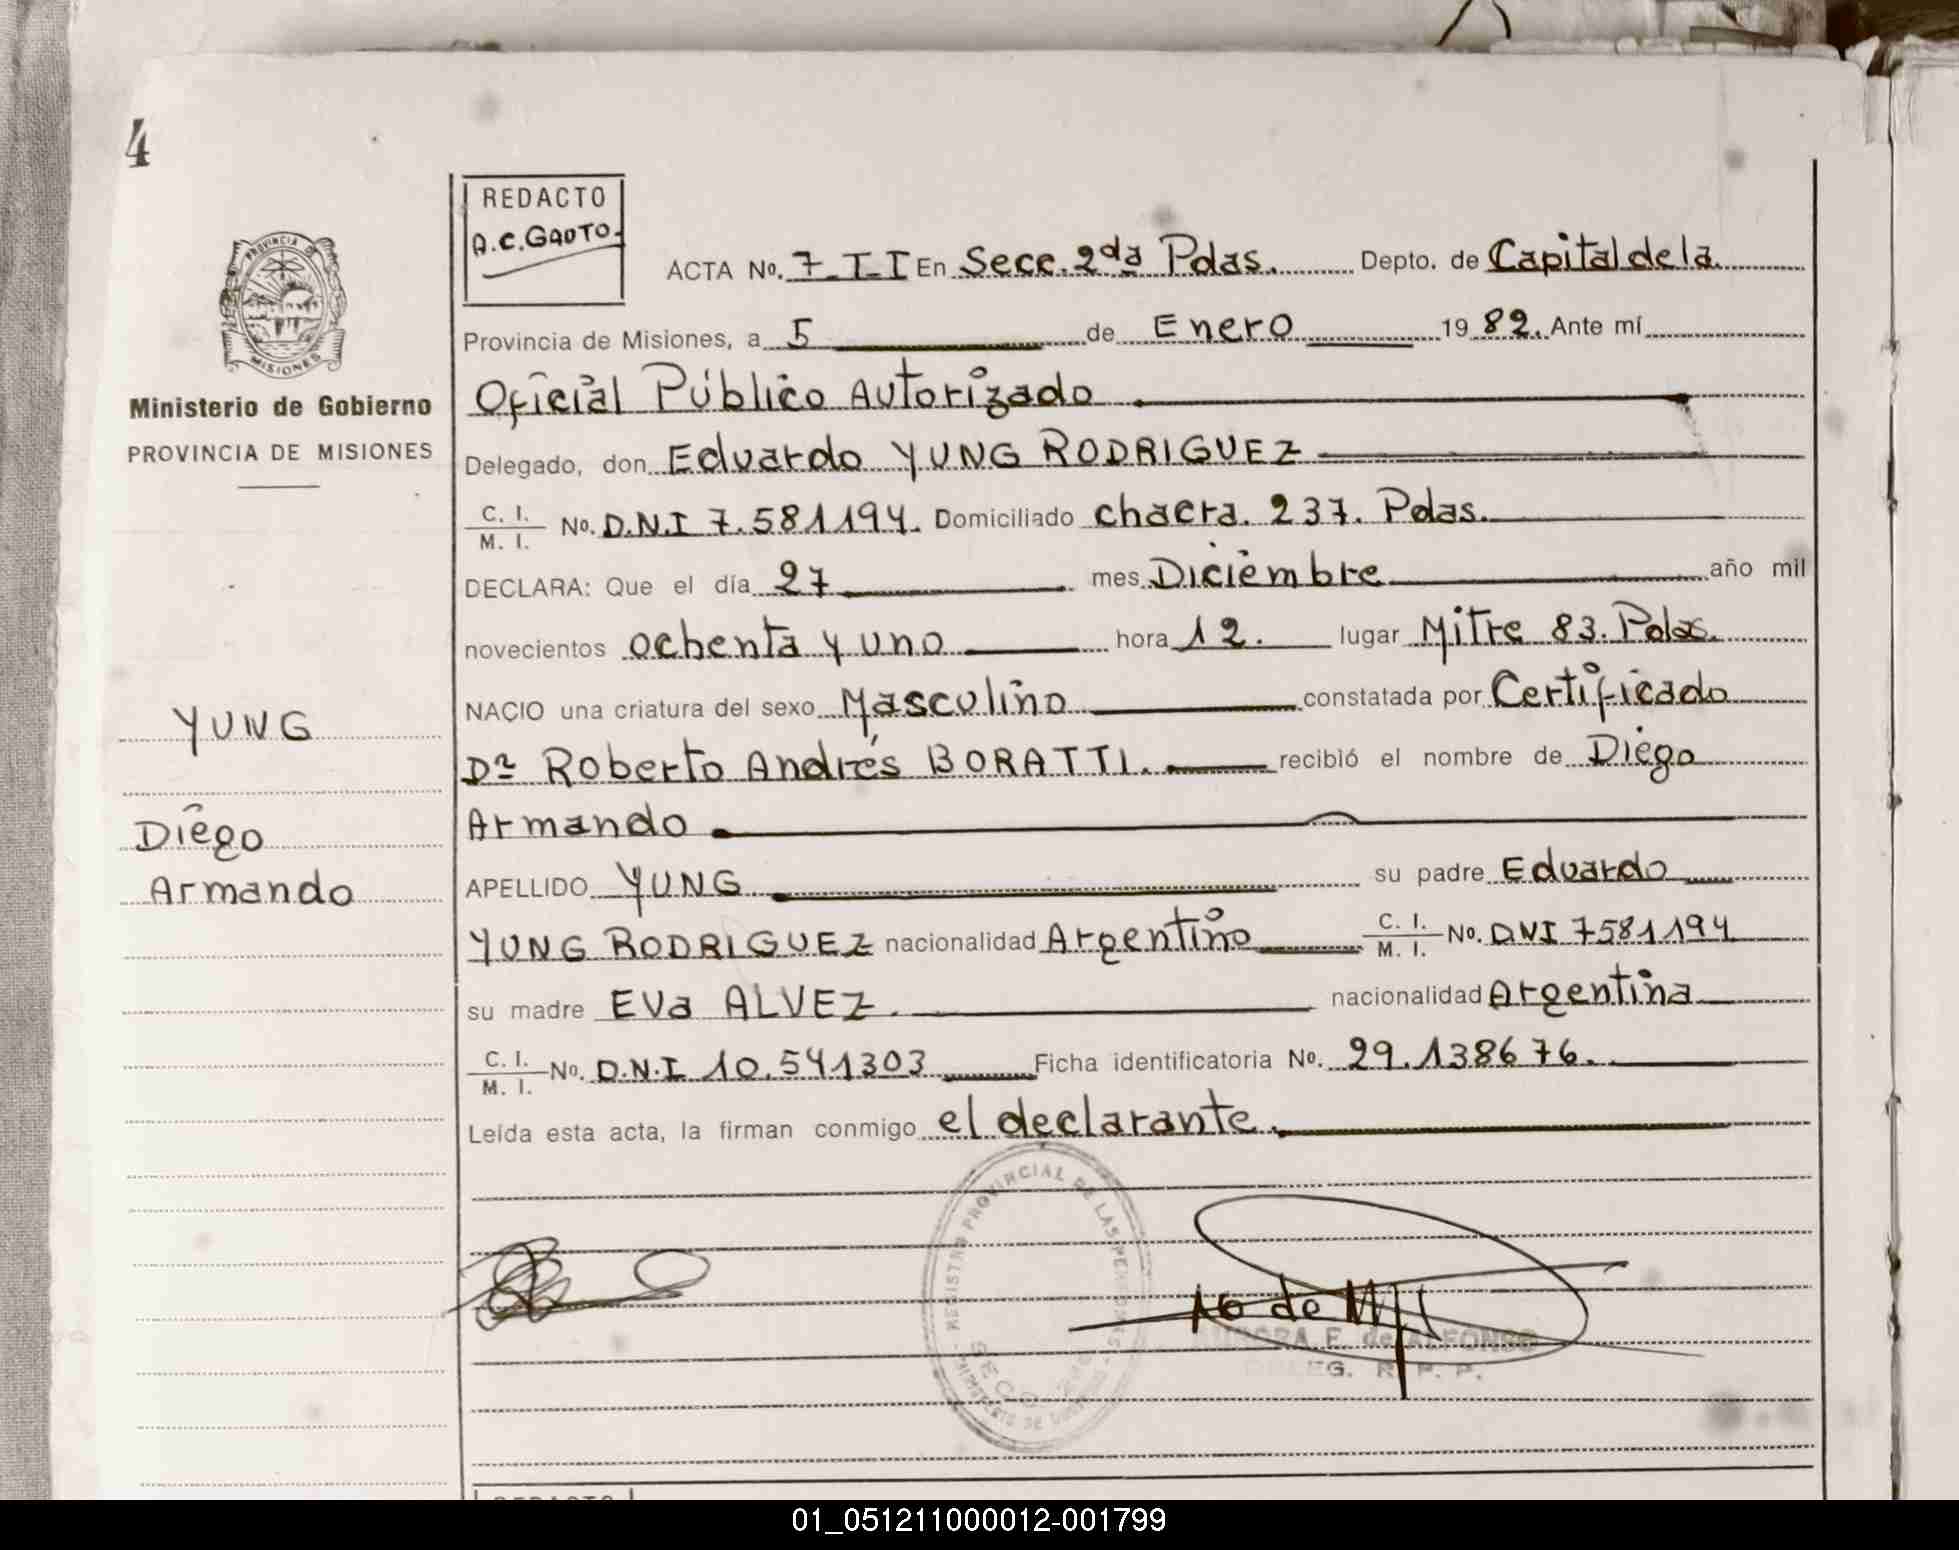 4
REDACTO
A.C. GAUTO.
ACTA No. 7-II En Secc. 2da Pdas. Depto. de Capital de la
Provincia de Misiones, a 5 de Enero 1982. Ante mí
Oficial Público Autorizado
Ministerio de Gobierno
PROVINCIA DE MISIONES
Delegado, don Eduardo YUNG RODRIGUEZ
C. I. / M. I. No. D.N.I 7.581194. Domiciliado chacra. 237. Pdas.
DECLARA: Que el día 27 mes Diciembre año mil
novecientos ochenta y uno hora 12. lugar Mitre 83. Pdas.
NACIO una criatura del sexo Masculino constatada por Certificado
Dr Roberto Andrés BORATTI. recibió el nombre de Diego
Armando
APELLIDO YUNG su padre Eduardo
YUNG RODRIGUEZ nacionalidad Argentino C. I. / M. I. No. DNI 7581194
su madre Eva ALVEZ. nacionalidad Argentina
C. I. / M. I. No. D.N.I 10.541303 Ficha identificatoria No. 29.138676.
Leída esta acta, la firman conmigo el declarante.
YUNG
Diego
Armando
PROVINCIA DE
MISIONES
REGISTRO PROVINCIAL DE LAS PERSONAS
SECC. 2da
AURORA E. de ALFONSO
DELEG. R. P. P.
REDACTO
01_051211000012-001799